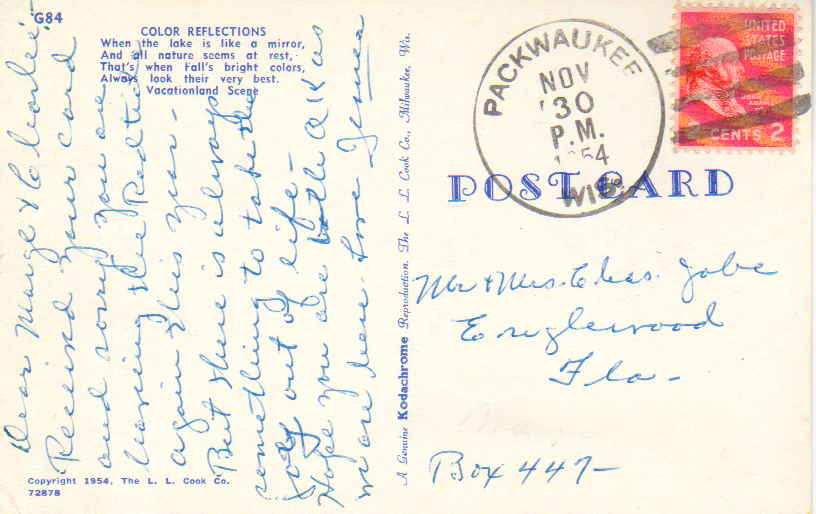 G84
COLOR REFLECTIONS
When the lake is like a mirror,
And all nature seems at rest,
That's when fall's bright colors,
Always look their very best.
Vacationland Scene
Dear Marge & Charlie:-
Received your card
and sorry you are
having the Red tide
again this year-
But there is always
something to take the
joy out of life-
Hope you are both O.K as
we are here. Love
Copyright 1954, The L. L. Cook Co.
72878
A Genuine Kodachrome Reproduction. The L. L. Cook Co., Milwaukee, Wis.
PACKWAUKEE
NOV
30
P.M.
1954
WIS.
UNITED
STATES
POSTAGE
JOHN
ADAMS
CENTS 2
POST CARD
Mr & Mrs. Chas. Jobe
Englewood
Fla-
Box 447-